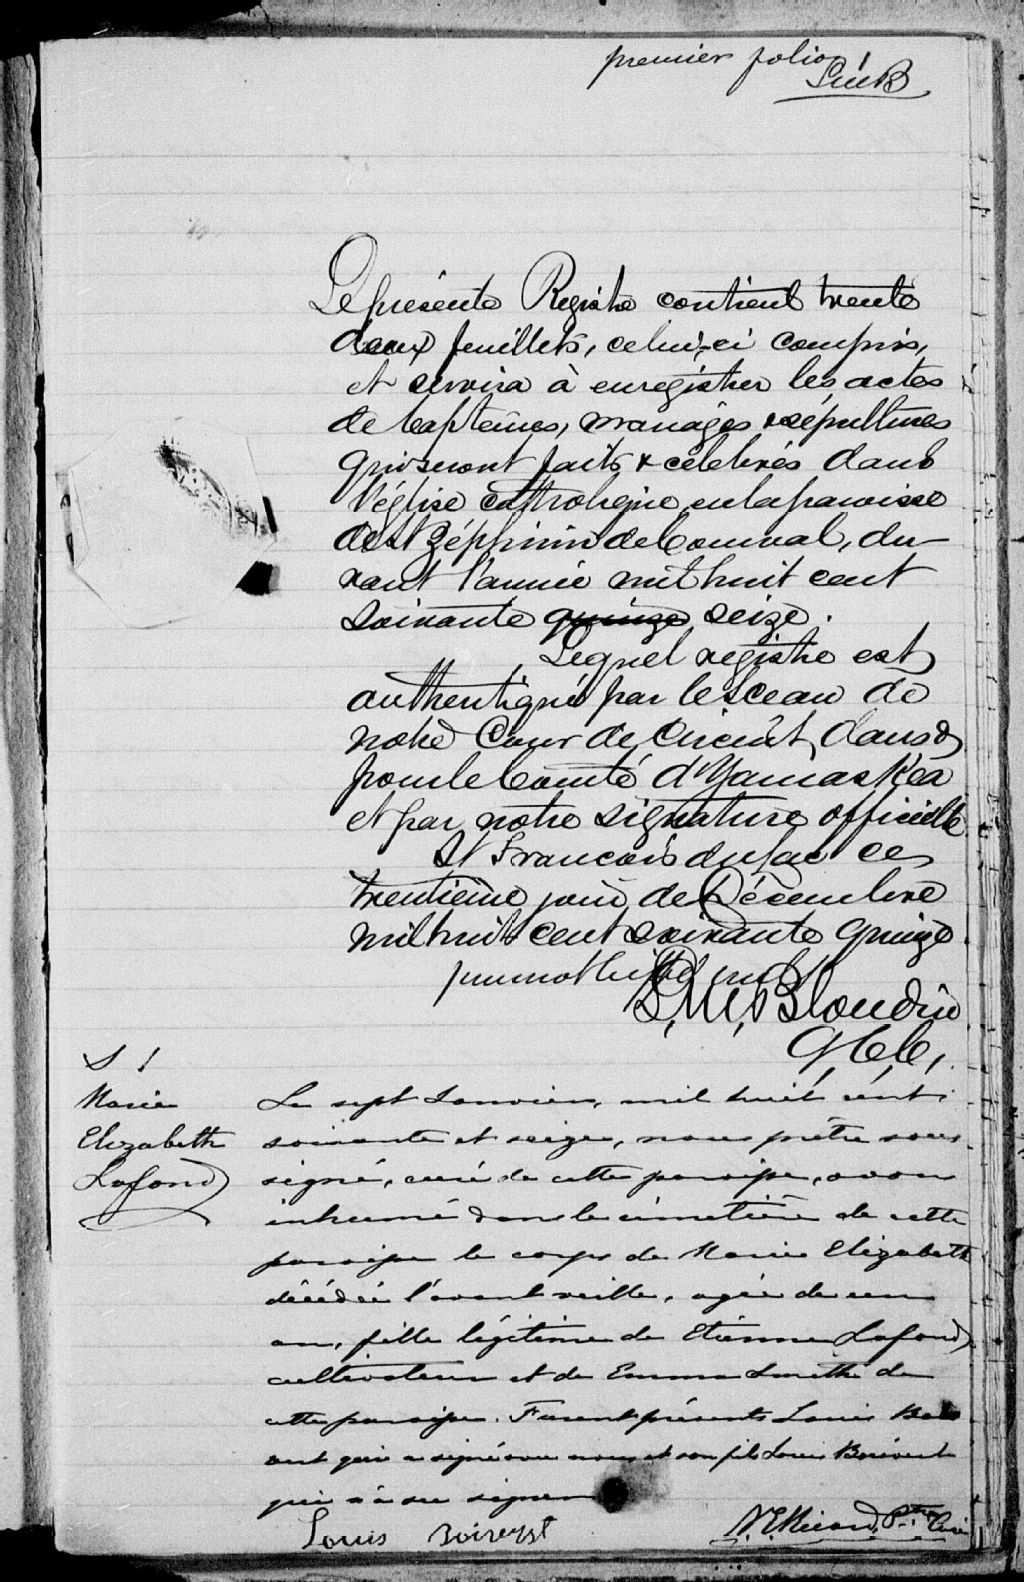 premier folio
Le présente Registre contient trente
deux feuillets, celui-ci compris,
et servira à enregistrer les actes
de baptêmes, mariages & sépultures
qui seront faits & célébrés dans
l'église catholique en la paroisse
de St Zéphirin de Courval, du-
rant l'année mil huit cent
soixante quinze seize.
Lequel registre est
authentiqué par le sceau de
notre Cour de Circuit, dans &
pour le Comté d'Yamaska
et par notre signature officielle
St Francois du Lac ce
trentième jour de Décembre
mil huit cent soixante quinze
un mot biffé nul
Blondin
G.C.C.
S 1
Marie
Elizabeth
Lafond
Le sept Janvier, mil huit cent
soixante et seize, nous prêtre sous
signé, curé de cette paroisse, avons
inhumé dans le cimetière de cette
paroisse le corps de Marie Elizabeth
décédée l'avant veille, agée de un
an, fille légitime de Etienne Lafond
cultivateur et de Emma Smith de
cette paroisse. Furent présents Louis Bois
vert qui a signé avec nous et son fils Louis Boisvert
qui n'a su signer
Louis Boisvert
Ptre Curé